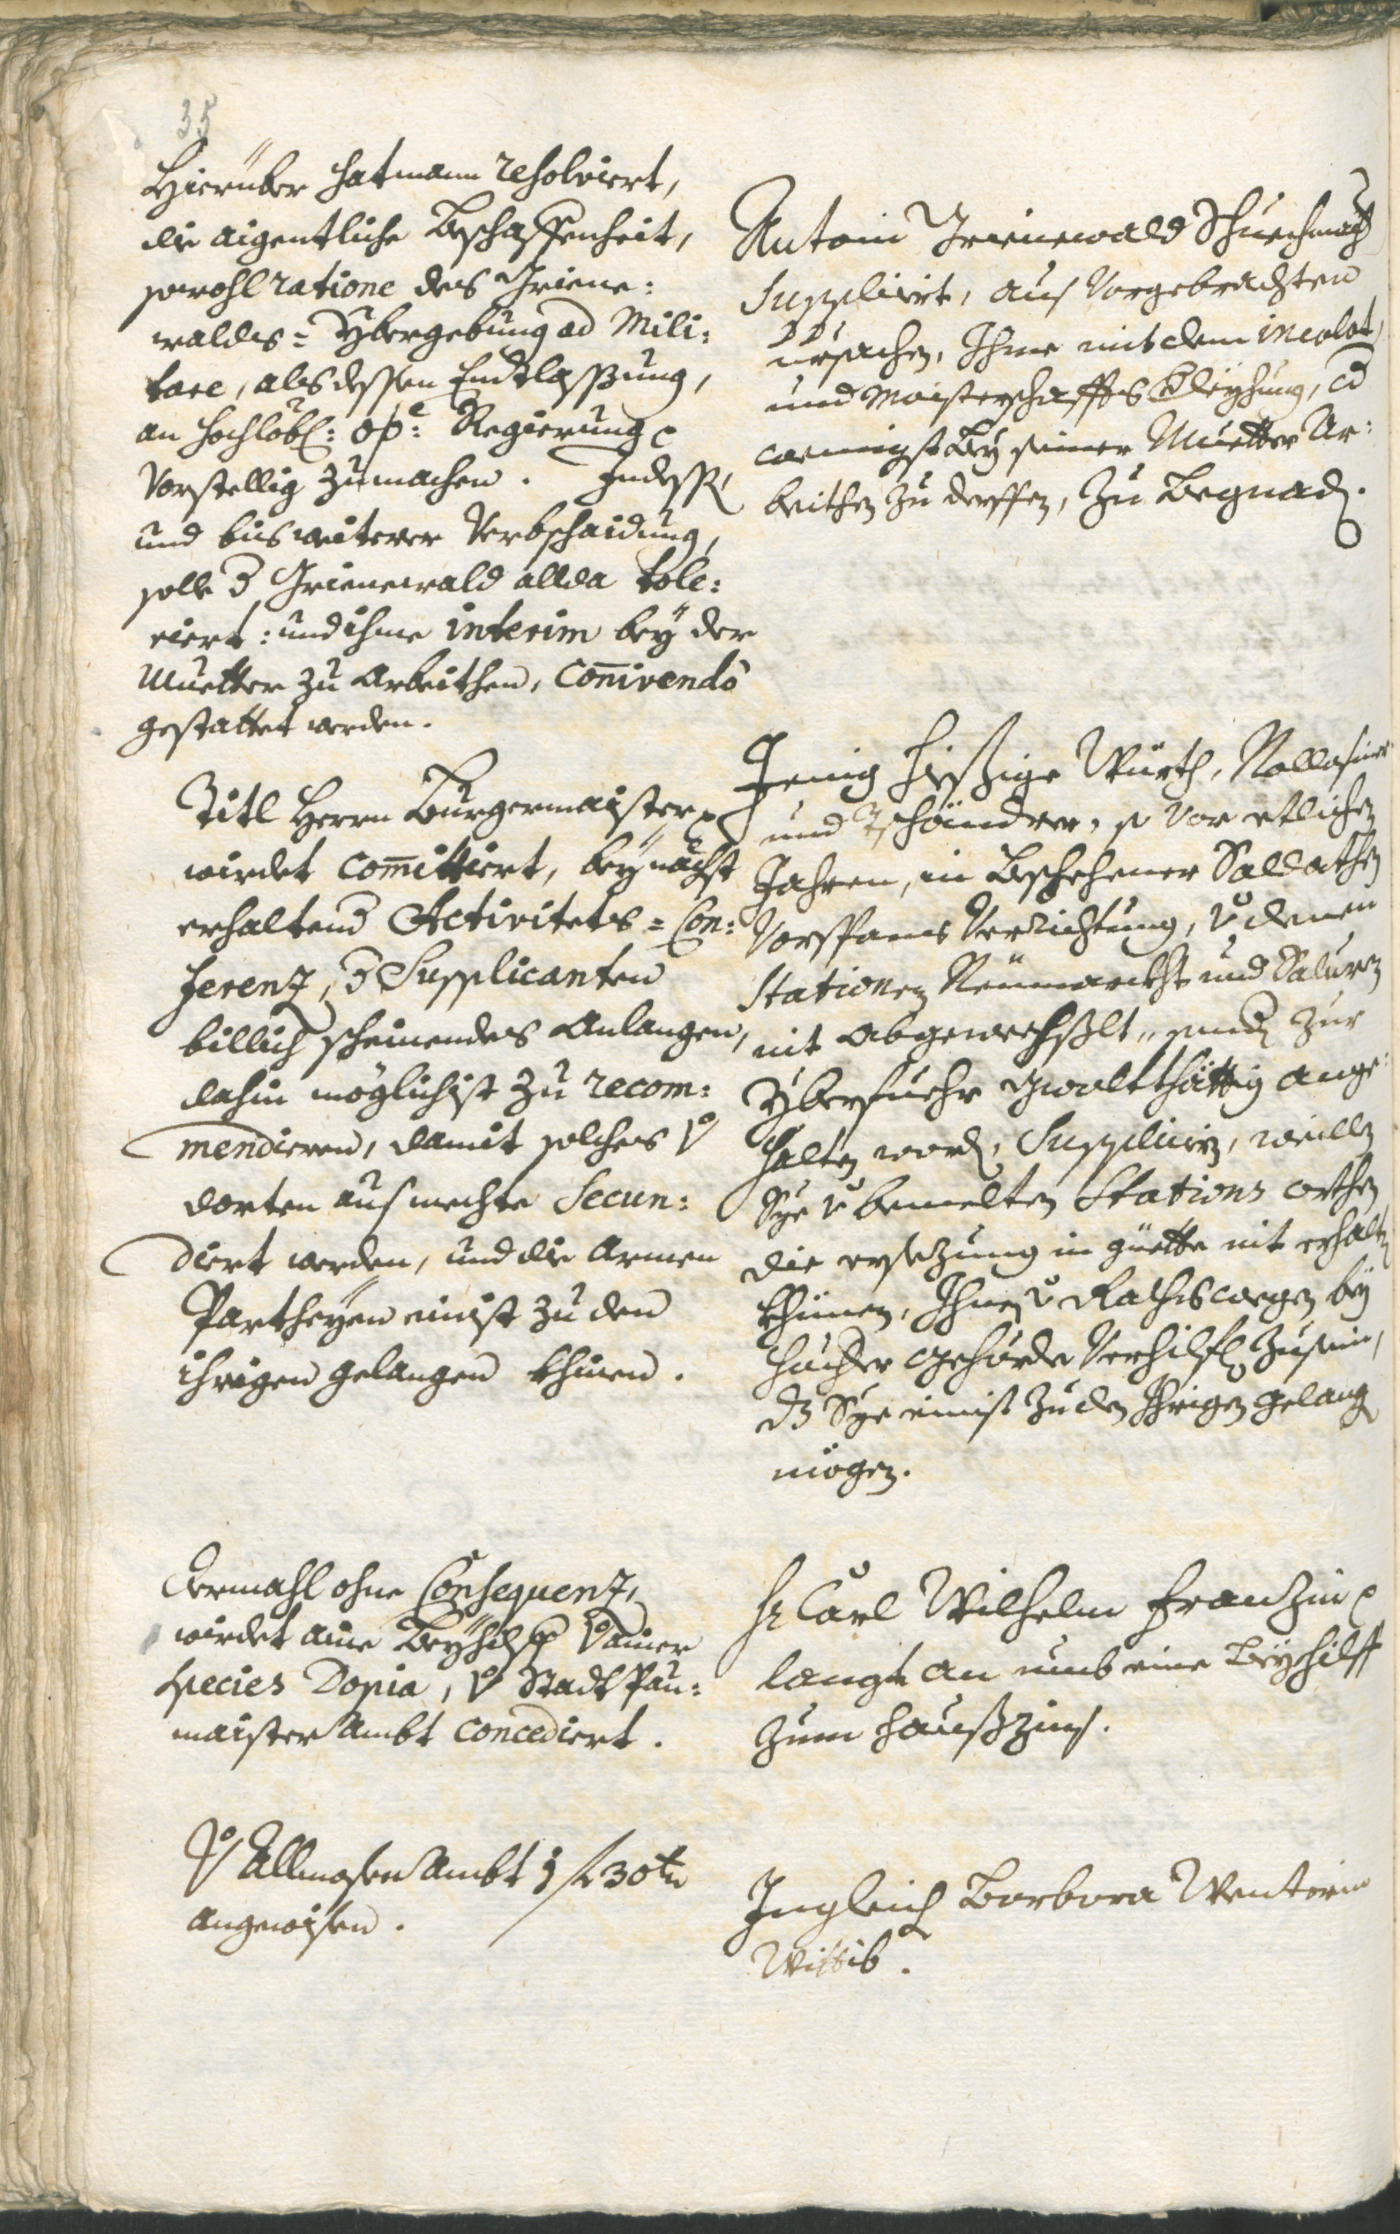 35
Hierüber hat mann resolviert,
die aigentliche Beschaffenheit,
sowohl ratione des Griene:
waldts = Ybergebung ad Mili:
tare, als dessen Endtlassung,
an hochlöbl: oö: Regierung
vorstellig zumachen. Indessen
und bis weiterer Verbschaidung,
solle Grienewald allda tole:
riert: und ihme interim bey der
Muetter zu Arbeithen, Conivendo
gestattet werden.
Antoni Grienewald Schuechmach
Supplicirt, aus vorgebrachten
ursachen, Ihme mit dem incolat,
und Maisterschaffts Verleyhung, od
wenigst bey seiner Muetter Ar:
beithen zu derffen, zu Begnaden.
Titl Herrn Burgermaister
wirdet Comittiert, bey nächst
erhaltend Activitets = Con:
ferenz, Supplicanten
billich scheinendes Anlangen,
dahin möglichist zu recom:
mendieren, damit solches von
dorten aus mechte Secun:
diert werden, und die Armen
Partheyen einist zu den
ihrigen gelangen khinen.
Jenig hiessige Würth, Rollfuhr
und Tschändrer, so vor etlichen
Jahren, in beschehener Soldathen
Vorspans Verrichtung, von denen
Stationen Neumarckht und Salurn
nit abgewechßlt, sondern zur
Yberfuehr gwaltthättig ange:
halten worden, Supplicirn, weillen
Sye von bemelten Stations orthen
die ersezung in güette nit erhalten
khünen, Ihnen von Raths wegen bey
hocher Gehörde Verhilfl. zu sein,
dz Sye einist zu den Ihrigen gelang
mögen.
Dermahl ohne Consequenz,
wirdet aine Beyhilff von ainer
species Dopia, von Stadt Pau:
maister Ambt concediert.
Hr Carl Wilhelm Franzin
langt an umb eine Beyhilff
zum Haußzins.
Von Allmosen Ambt 1 fl 30 kr
angewisen.
Ingleich Barbara Wenterin
Wittib.